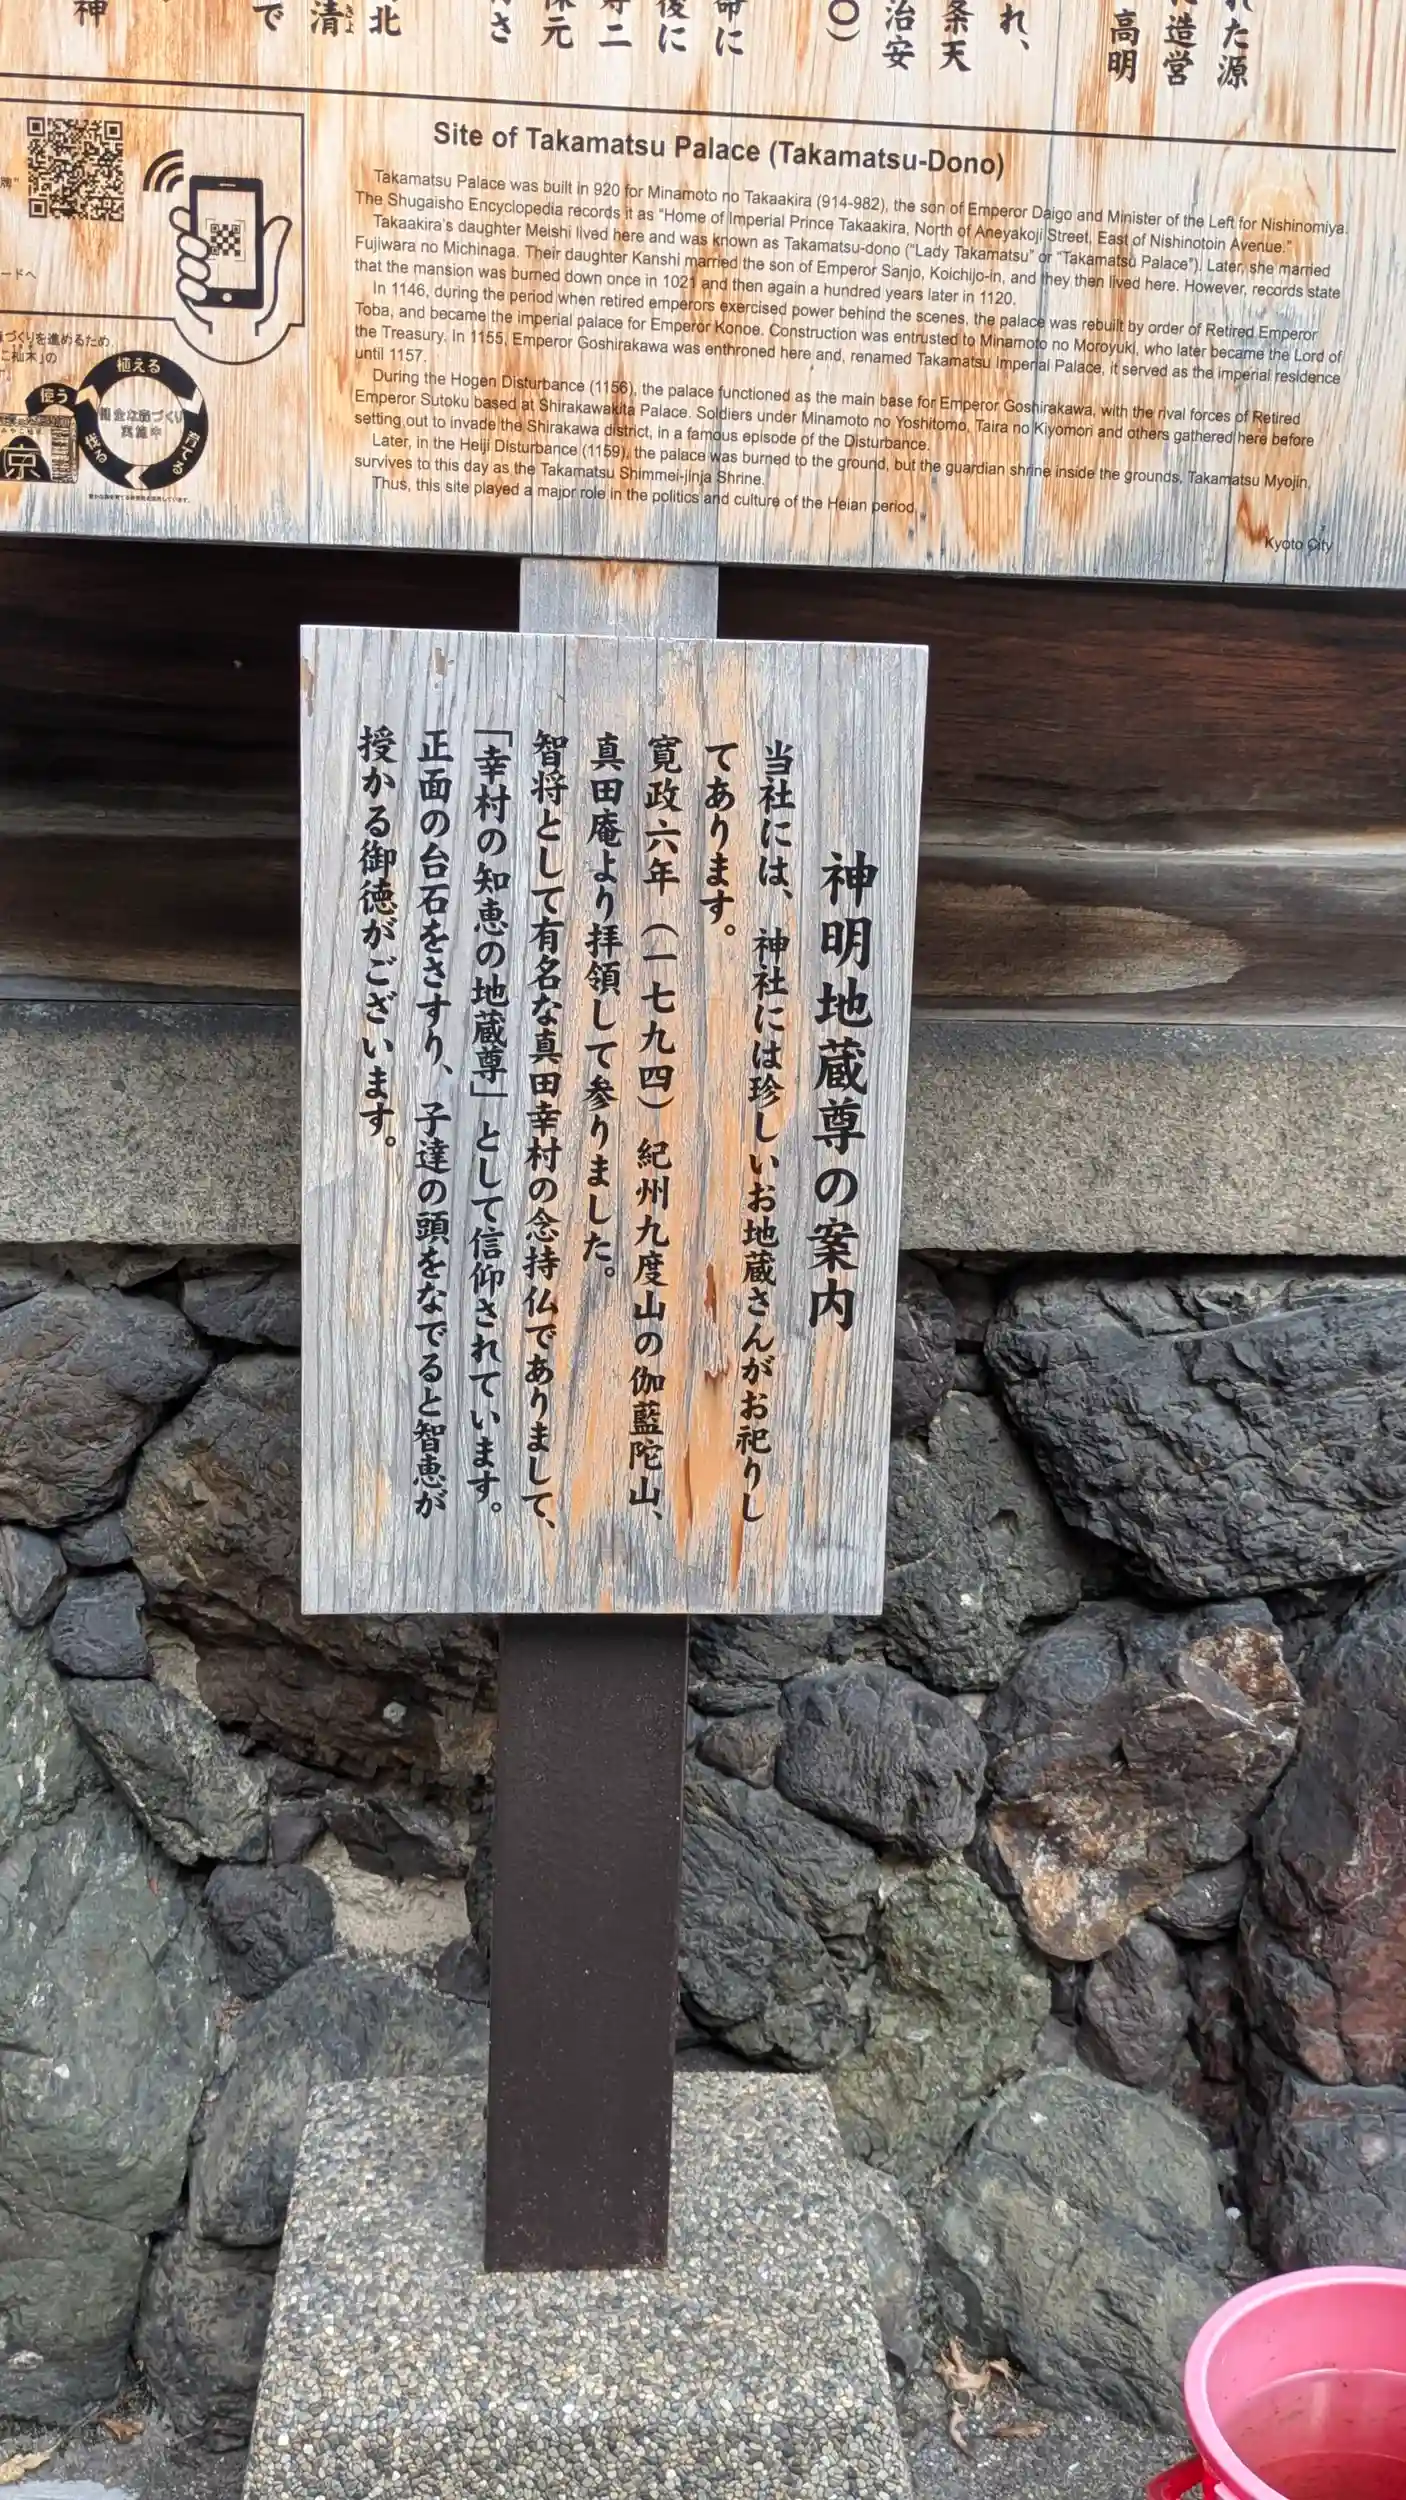 れた源
造営
高明
れ、
条天
治安
〇）
命に
後に
寿二
保元
さ
北
清
きよ
で
神
牌”
ードへ
植える
使う
育てる
伐る
実施中
京
Site of Takamatsu Palace (Takamatsu-Dono)
Takamatsu Palace was built in 920 for Minamoto no Takaakira (914-982), the son of Emperor Daigo and Minister of the Left for Nishinomiya.
The Shugaisho Encyclopedia records it as “Home of Imperial Prince Takaakira, North of Aneyakoji Street, East of Nishinotoin Avenue.”
Takaakira's daughter Meishi lived here and was known as Takamatsu-dono (“Lady Takamatsu” or “Takamatsu Palace”). Later, she married
Fujiwara no Michinaga. Their daughter Kanshi married the son of Emperor Sanjo, Koichijo-in, and they then lived here. However, records state
that the mansion was burned down once in 1021 and then again a hundred years later in 1120.
In 1146, during the period when retired emperors exercised power behind the scenes, the palace was rebuilt by order of Retired Emperor
Toba, and became the imperial palace for Emperor Konoe. Construction was entrusted to Minamoto no Moroyuki, who later became the Lord of
the Treasury. In 1155, Emperor Goshirakawa was enthroned here and, renamed Takamatsu Imperial Palace, it served as the imperial residence
until 1157.
During the Hogen Disturbance (1156), the palace functioned as the main base for Emperor Goshirakawa, with the rival forces of Retired
Emperor Sutoku based at Shirakawakita Palace. Soldiers under Minamoto no Yoshitomo, Taira no Kiyomori and others gathered here before
setting out to invade the Shirakawa district, in a famous episode of the Disturbance.
Later, in the Heiji Disturbance (1159), the palace was burned to the ground, but the guardian shrine inside the grounds, Takamatsu Myojin,
survives to this day as the Takamatsu Shimmei-jinja Shrine.
Thus, this site played a major role in the politics and culture of the Heian period.
Kyoto City
神明地蔵尊の案内
当社には、神社には珍しいお地蔵さんがお祀りし
てあります。
寛政六年（一七九四）紀州九度山の伽藍陀山、
真田庵より拝領して参りました。
智将として有名な真田幸村の念持仏でありまして、
「幸村の知恵の地蔵尊」として信仰されています。
正面の台石をさすり、子達の頭をなでると智恵が
授かる御徳がございます。